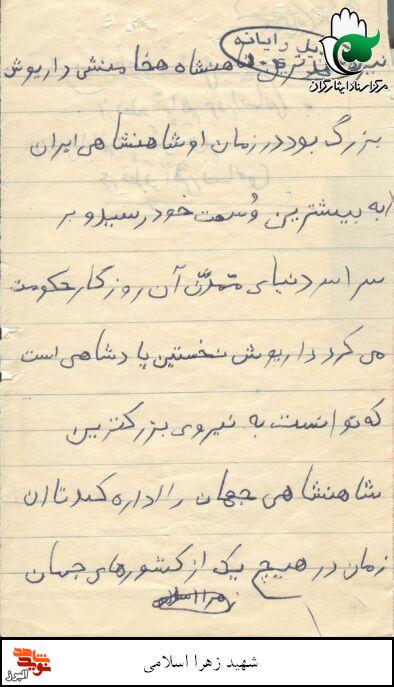 فایل رایانه
مرکز اسناد ایثارگران
نیرومندترین شاهنشاه هخامنشی داریوش
بزرگ بود در زمان او شاهنشاهی ایران
به بیشترین وُسعت خود رسید و بر
سراسر دنیای متمدّن آن روزگار حکومت
می کرد داریوش نخستین پادشاهی است
که توانست به نیروی بزرگترین
شاهنشاهی جهان را اداره کند تا ان
زمان در هیچ یک از کشورهای جهان
زهرا اسلامی
شهید زهرا اسلامی
نوید شاهد
البرز